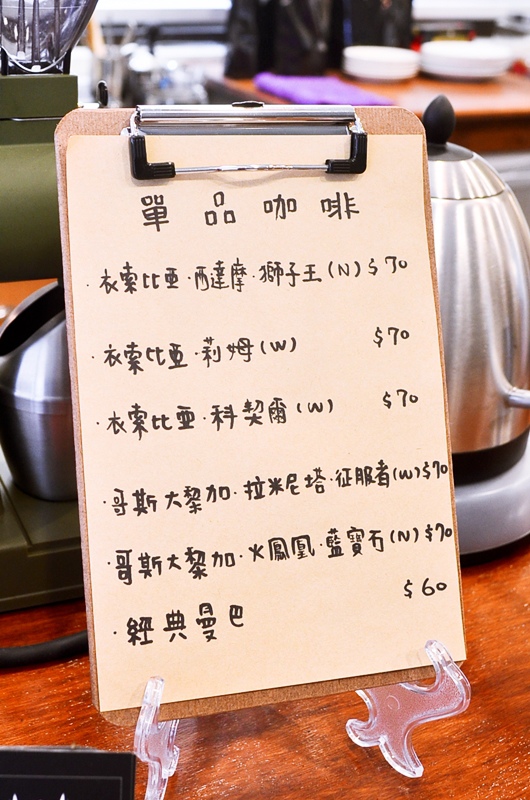 單品咖啡
·衣索比亞·西達摩·獅子王(N)$70
·衣索比亞·莉姆(W) $70
·衣索比亞·科契爾(W) $70
·哥斯大黎加·拉米尼塔·征服者(W)$70
·哥斯大黎加·火鳳凰·藍寶石(N)$70
·經典曼巴 $60